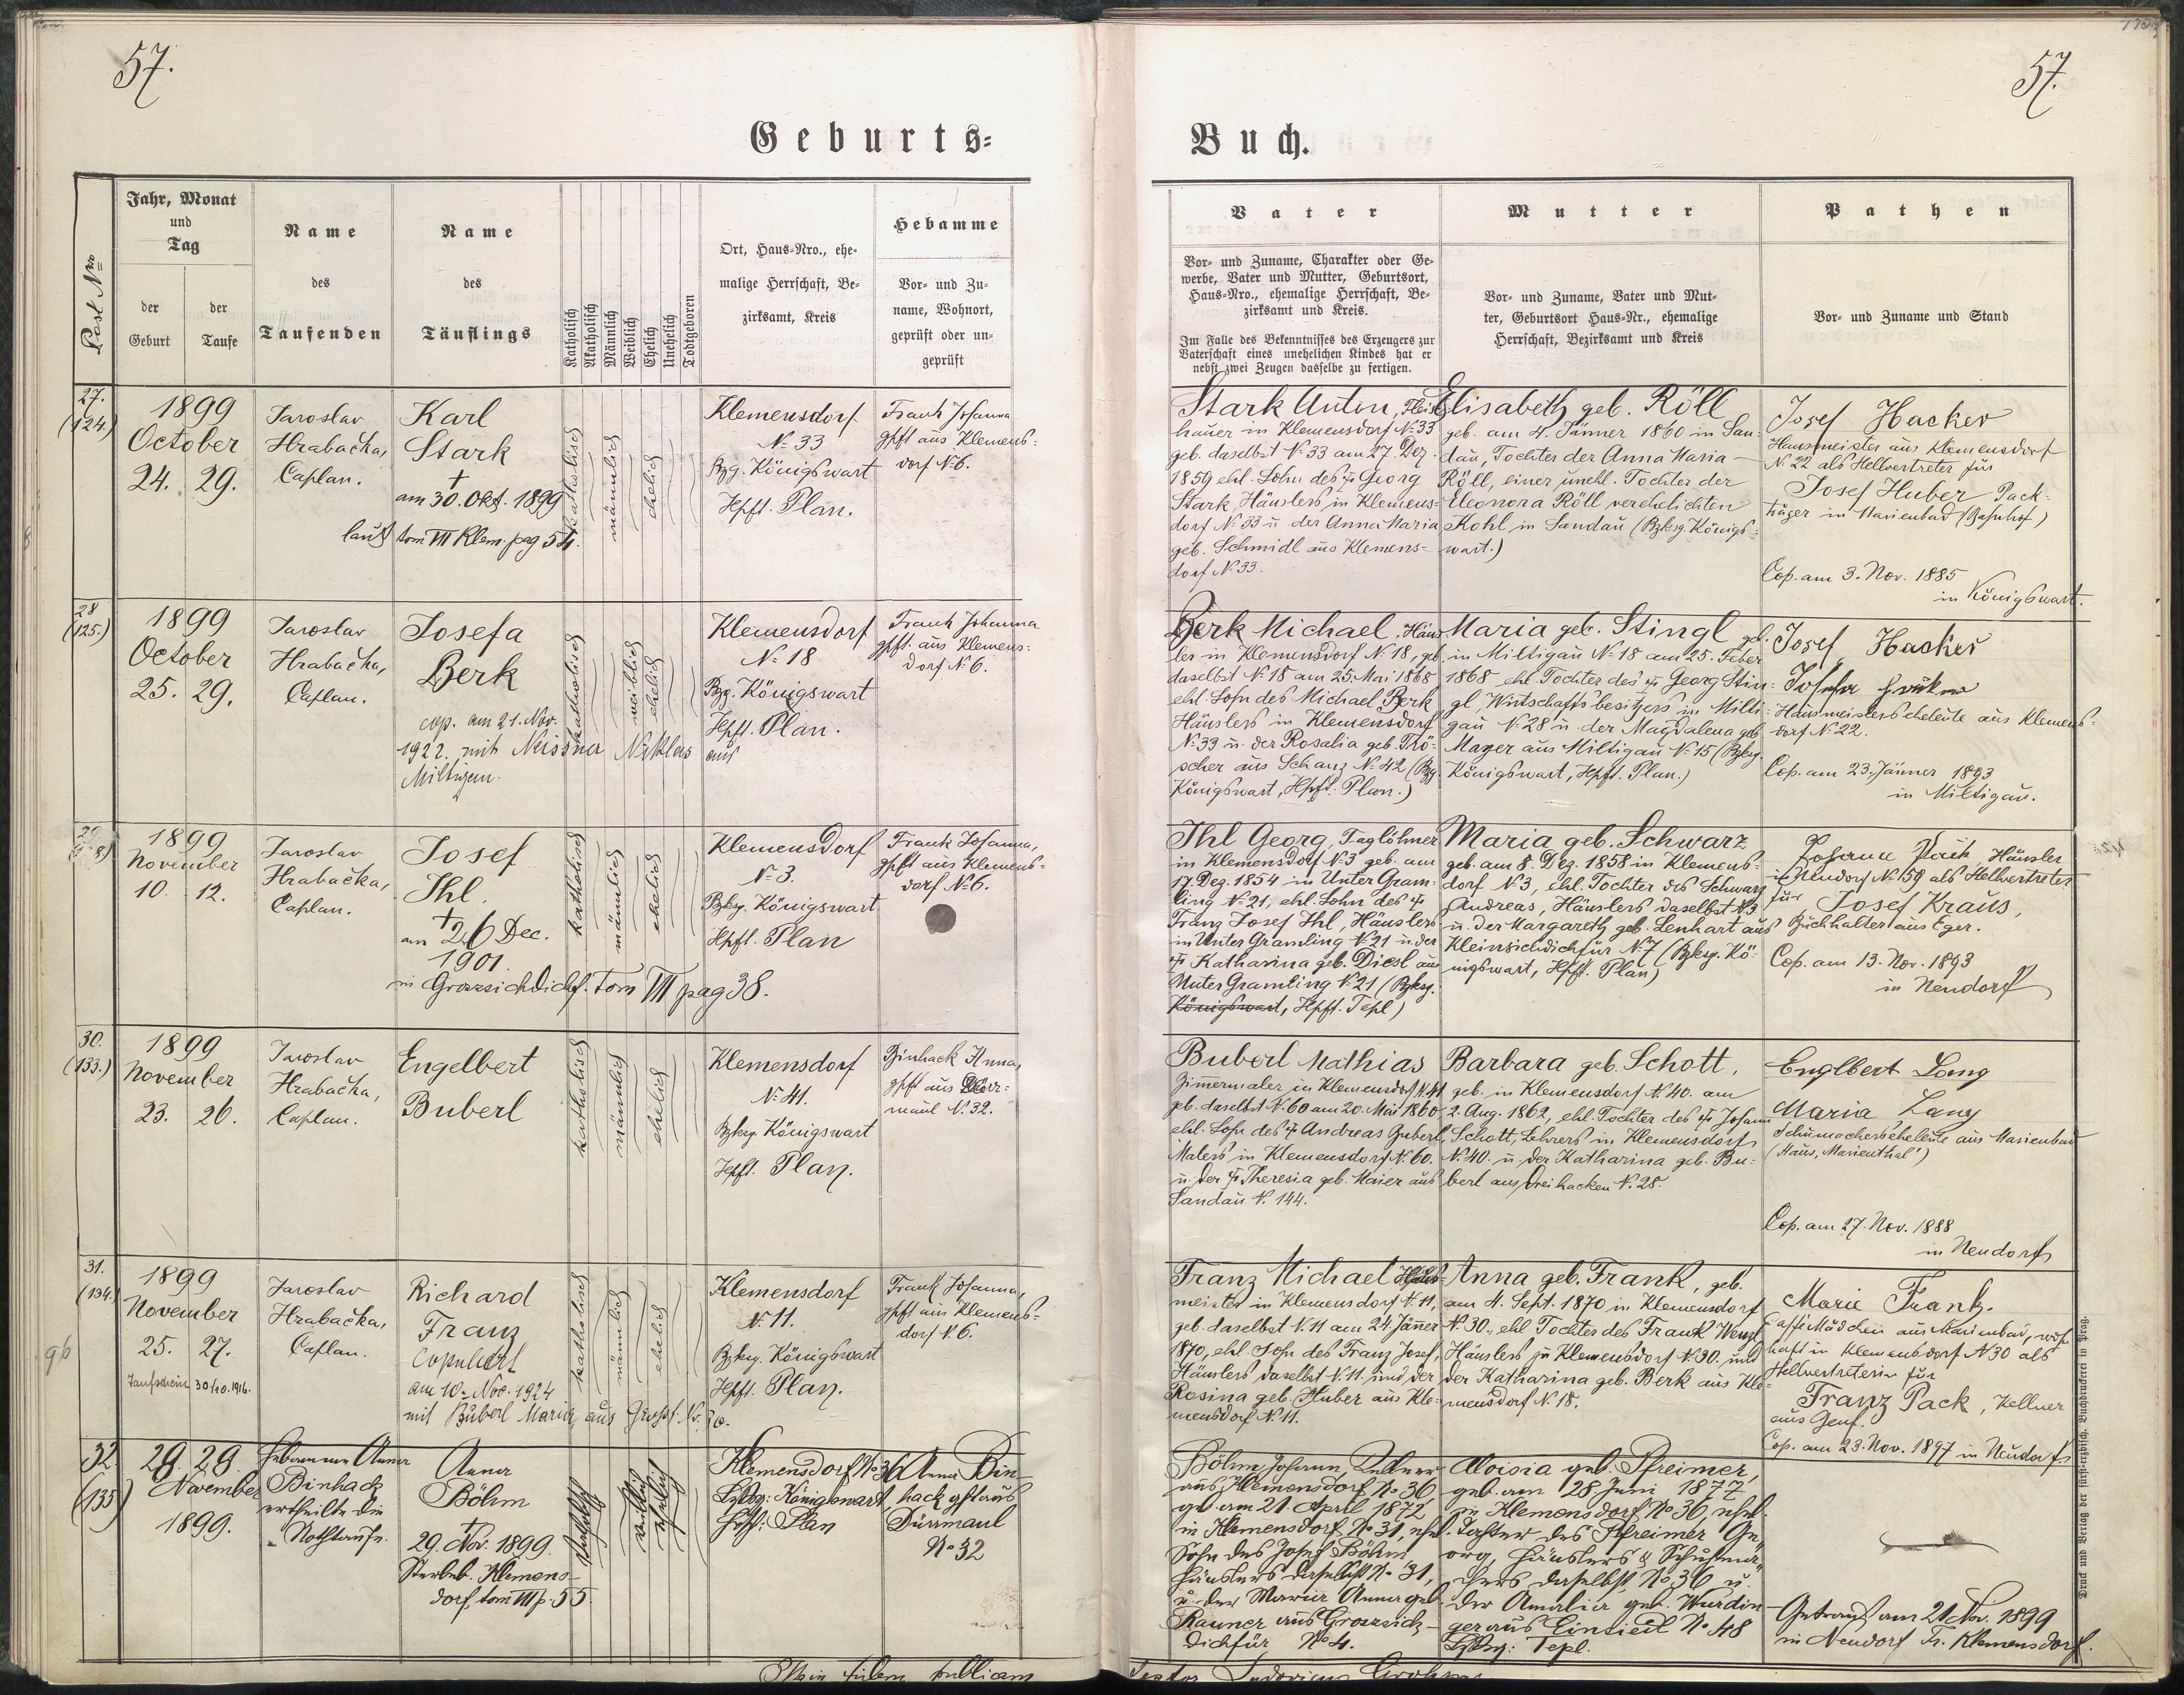 57.
57.
Geburts-
Buch.
Post Nro
Jahr, Monat
und
Tag
der
Geburt
der
Taufe
Name
des
Taufenden
Name
des
Täuflings
Katholisch
Akatholisch
Männlich
Weiblich
Ehelich
Unehelich
Todtgeboren
Ort, Haus-Nro., ehe-
malige Herrschaft, Be-
zirksamt, Kreis
Hebamme
Vor- und Zu-
name, Wohnort,
geprüft oder un-
geprüft
Vater
Vor- und Zuname, Charakter oder Ge-
werbe, Vater und Mutter, Geburtsort,
Haus-Nro., ehemalige Herrschaft, Be-
zirksamt und Kreis.
Im Falle des Bekenntnisses des Erzeugers zur
Vaterschaft eines unehelichen Kindes hat er
nebst zwei Zeugen dasselbe zu fertigen.
Mutter
Vor- und Zuname, Vater und Mut-
ter, Geburtsort Haus-Nr., ehemalige
Herrschaft, Bezirksamt und Kreis
Pathen
Vor- und Zuname und Stand
27.
(124.)
1899
October
24. 29.
Jaroslav
Hrabačka,
Caplan.
Karl
Stark
†
am 30. Okt. 1899
laut tom VII Klem. pag 54.
katholisch
männlich
ehelich
Klemensdorf
N. 33
Bzg. Königswart
Hpft. Plan.
Frank Johanna
gpft aus Klemens-
dorf N. 6.
Stark Anton, Fleisch-
hauer in Klemensdorf N. 33
geb. daselbst N. 33 am 27. Dez.
1859 ehl. Sohn des † Georg
Stark, Häuslers in Klemens-
dorf N. 33 u. der Anna Maria
geb. Schmidl aus Klemens-
dorf N. 33.
Elisabeth geb. Röll
geb. am 4. Jänner 1860 in San-
dau, Tochter der Anna Maria
Röll, einer unehl. Tochter der
Eleonora Röll verehelichten
Kohl, in Sandau (Bzksg. Königs-
wart.)
Josef Hacker
Hausmeister aus Klemensdorf
N. 22 als Stellvertreter für
Josef Huber Pack-
träger in Marienbad (Bahnhof)
Cop. am 3. Nov. 1885
in Königswart.
28
(125.)
1899
October
25. 29.
Jaroslav
Hrabačka,
Caplan.
Josefa
Berk
cop. am 21. Nov.
1922. mit Neissner Niklas aus
Miltigau.
katholisch
weiblich
ehelich
Klemensdorf
N. 18
Bzg. Königswart
Hpft. Plan.
Frank Johanna
gpft. aus Klemens-
dorf N. 6.
Berk Michael, Häus-
ler in Klemensdorf N. 18, geb.
daselbst N. 18 am 25. Mai 1868
ehl. Sohn des Michael Berk
Häuslers in Klemensdorf
N. 33 u. der Rosalia geb. Trö-
scher aus Schanz N. 42 (Bzg.
Königswart, Hpft. Plan.)
Maria geb. Stingl geb.
in Miltigau N. 18 am 25. Feber
1868 ehl. Tochter des † Georg Stin-
gl, Wirtschaftsbesitzers in Milti-
gau N. 28 u. der Magdalena geb.
Mayer aus Miltigau N. 15 (Bzksg.
Königswart, Hpft. Plan.)
Josef Hacker
Hausmeisterseheleute aus Klemens-
dorf N. 22.
Cop. am 23. Jänner 1893
in Miltigau.
29
1899
November
10. 12.
Jaroslav
Hrabačka,
Caplan.
Josef
Ihl.
†
am 26 Dec.
1901.
in Grosssichdichf. Tom VII pag 38.
katholisch
männlich
ehelich
Klemensdorf
N. 3.
Bzksg. Königswart
Hpft. Plan
Frank Johanna,
gpft aus Klemens-
dorf N. 6.
Ihl Georg, Taglöhner
in Klemensdorf N. 3 geb. am
17. Dez. 1854 in Unter Gram-
ling N. 21, ehl. Sohn des †
Franz Josef Ihl, Häuslers
in Unter Gramling N. 21 u. der
† Katharina geb. Diesl aus
Unter Gramling N. 21 (Bzksg.
Königswart, Hpft. Tepl)
Maria geb. Schwarz
geb. am 8. Dez. 1858 in Klemens-
dorf N. 3, ehl. Tochter des Schwarz
Andreas, Häuslers daselbst N. 3
u. der Margareth geb. Lenhart aus
Kleinsichdichfür N. 7 (Bzksg. Kö-
nigswart, Hpft. Plan)
Häusler
in Neudorf N. 159 als Stellvertreter
für Josef Kraus,
Buchhalter aus Eger.
Cop. am 13. Nov. 1893
in Neudorf
30.
(133.)
1899
November
23. 26.
Jaroslav
Hrabačka,
Caplan.
Engelbert
Buberl
katholisch
männlich
ehelich
Klemensdorf
N. 41.
Bzksg. Königswart
Hpft. Plan.
Binhack Anna,
gpft aus Dürr-
maul N. 32.
Buberl Mathias
Zimermaler in Klemensdorf N. 41
geb. daselbst N. 60 am 20. Mai 1860
ehl. Sohn des † Andreas Buberl,
Malers in Klemensdorf N. 60.
u. der † Theresia geb. Maier aus
Sandau N. 144.
Barbara geb. Schott,
geb. in Klemensdorf N. 40. am
2. Aug. 1862, ehl. Tochter des † Johann
Schott, Lehrers in Klemensdorf
N. 40. u. der Katharina geb. Bu-
berl aus Dreihacken N. 28.
Englbert Lang
Maria Lang
Schumacherseheleute aus Marienbad
(Haus, Marienthal')
Cop. am 27. Nov. 1888
in Neudorf
31.
(134.)
1899
November
25. 27.
Taufschein 30/10. 1916.
Jaroslav
Hrabačka,
Caplan.
Richard
Franz
Copuliert
am 10. Nov. 1924
mit Buberl Maria, aus
katholisch
männlich
ehelich
Klemensdorf
N. 11.
Bzksg. Königswart
Hpft. Plan.
Frank Johanna,
gpft aus Klemens-
dorf N. 6.
Franz Michael Haus-
meister in Klemensdorf N. 11,
geb. daselbst N. 11 am 24. Jänner
1870, ehl. Sohn des Franz Josef,
Häuslers daselbst N. 11. und der
Rosina geb. Huber aus Kle-
mensdorf N. 11.
Anna geb. Frank, geb.
am 4. Sept. 1870 in Klemensdorf
N. 30., ehl Tochter des Frank Wenzl
Häuslers in Klemensdorf N. 30. und
der Katharina geb. Berk aus Kle-
mensdorf N. 18.
Marie Frank.
Caffeemädchen aus Marienbad, wohn-
haft in Klemensdorf N 30 als
Stellvertreterin für
Franz Pack, Kellner
aus Genf.
Cop. am 23. Nov. 1897 in Neudorf
32.
(135)
29. 29.
November
1899.
Hebamme Anna
Binhack
ertheilte die
Nothtaufe.
Anna
Böhm
†
29. Nov. 1899.
Sterbeb. Klemens-
dorf, tom VII p. 55
katholisch
weiblich
ehelich
Klemensdorf No 36
Bzksg: Königswart
Hpft: Plan
Anna Bin-
hack gpft aus
Dürrmaul
No 32
Böhm Johann, Kellner
aus Klemensdorf No 36
geb. am 21. April 1872
in Klemensdorf No 31, ehel.
Sohn des Josef Böhm,
Häuslers daselbst No 31,
u. der Maria Anna geb.
Rauner aus Grosssich-
dichfür No 4.
Aloisia geb. Pfreimer,
geb. am 28. Juni 1877
in Klemensdorf No 36, ehel.
Tochter des Pfreimer Ge-
org, Häuslers & Schuhma-
chers daselbst No 36 u.
der Amalia geb. Wurdin-
ger aus Einsiedl No 48
Bzksg: Tepl.
Getraut am 21. Nov. 1899
in Neudorf Tr. Klemensdorf.
Druck und Verlag der fürst-erzbisch. Buchdruckerei in Prag.